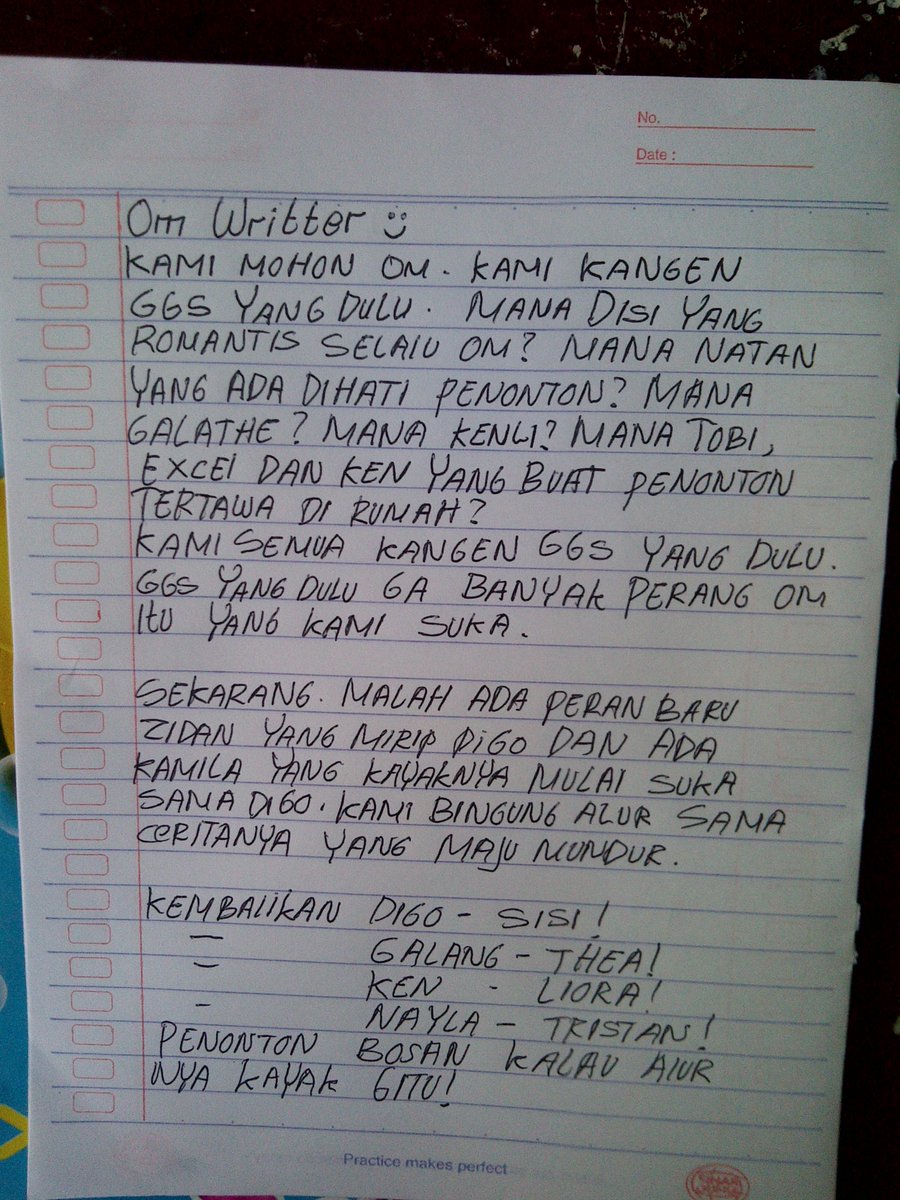 No.
Date :
Om Writter :)
KAMI MOHON OM. KAMI KANGEN
GGS YANG DULU. MANA DISI YANG
ROMANTIS SELALU OM? MANA NATAN
YANG ADA DIHATI PENONTON? MANA
GALATHE? MANA KENLI? MANA TOBI,
EXCEL DAN KEN YANG BUAT PENONTON
TERTAWA DI RUMAH?
KAMI SEMUA KANGEN GGS YANG DULU.
GGS YANG DULU GA BANYAK PERANG OM
ITU YANG KAMI SUKA.
SEKARANG. MALAH ADA PERAN BARU
ZIDAN YANG MIRIP DIGO DAN ADA
KAMILA YANG KAYAKNYA MULAI SUKA
SAMA DIGO. KAMI BINGUNG ALUR SAMA
CERITANYA YANG MAJU MUNDUR.
KEMBALIKAN DIGO - SISI!
— GALANG - THEA!
— KEN - LIORA!
- NAYLA - TRISTAN!
PENONTON BOSAN KALAU ALUR
NYA KAYAK GITU!
Practice makes perfect